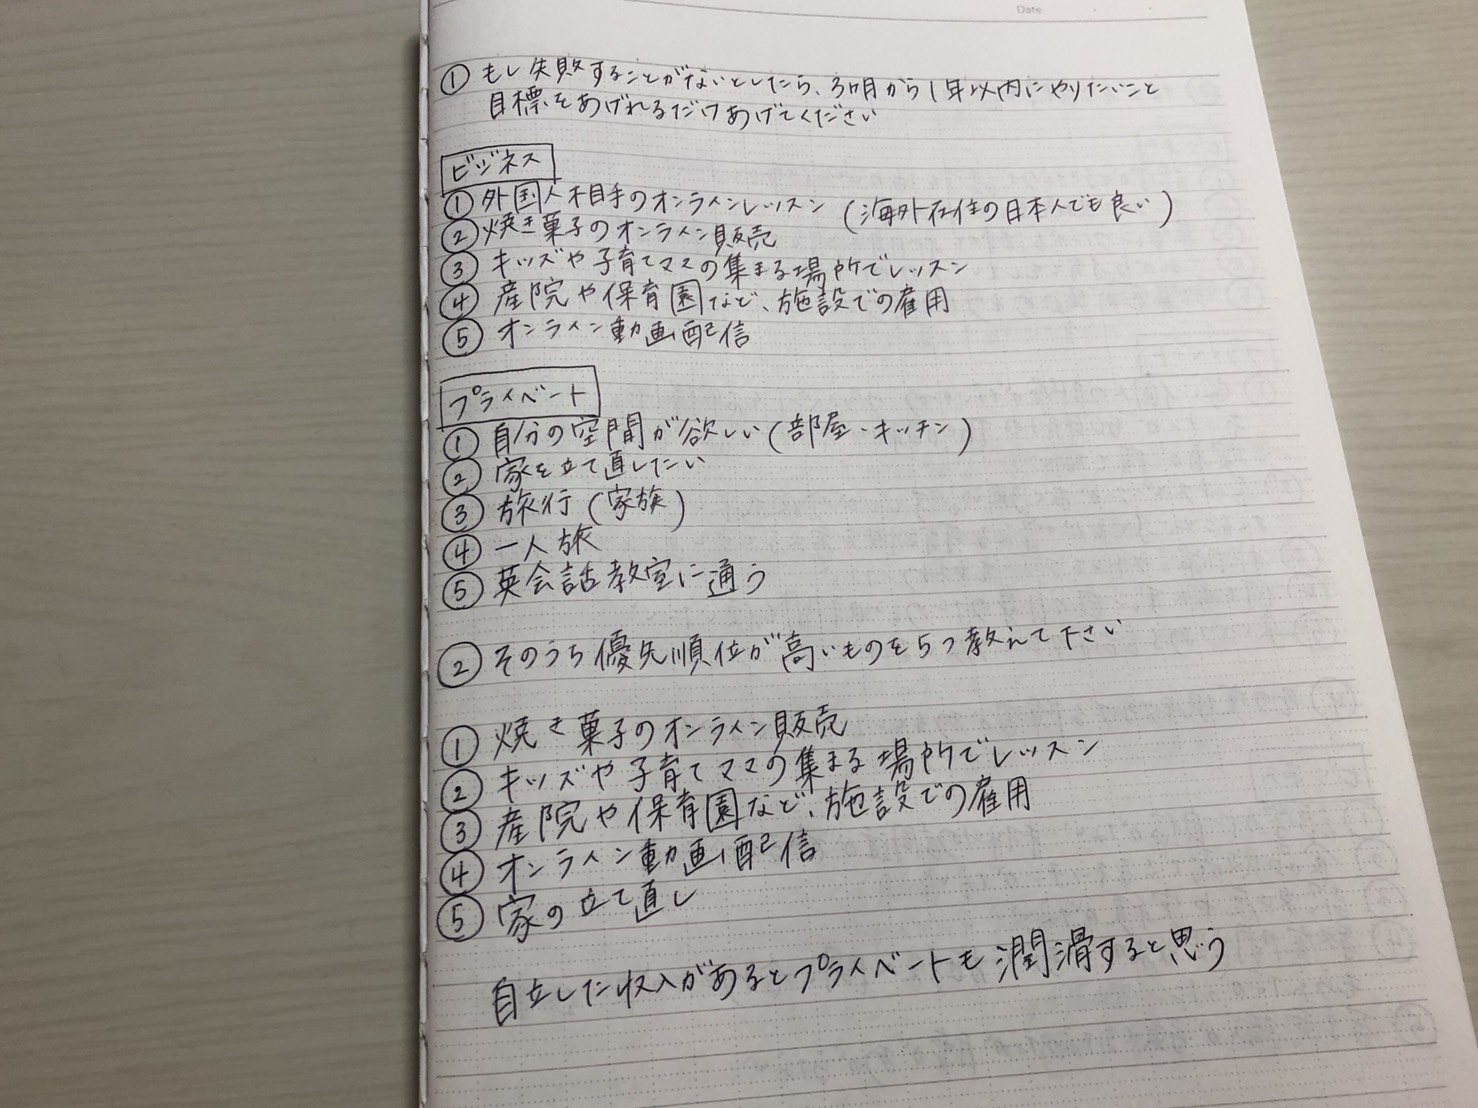 Date
① もし失敗することがないとしたら、3ヶ月から1年以内にやりたいこと
目標をあげれるだけあげてください
ビジネス
① 外国人相手のオンラインレッスン (海外在住の日本人でも良い)
② 焼き菓子のオンライン販売
③ キッズや子育てママの集まる場所でレッスン
④ 産院や保育園など、施設での雇用
⑤ オンライン動画配信
プライベート
① 自分の空間が欲しい (部屋・キッチン)
② 家を立て直したい
③ 旅行 (家族)
④ 一人旅
⑤ 英会話教室に通う
② そのうち優先順位が高いものを5つ教えて下さい
① 焼き菓子のオンライン販売
② キッズや子育てママの集まる場所でレッスン
③ 産院や保育園など、施設での雇用
④ オンライン動画配信
⑤ 家の立て直し
自立した収入があるとプライベートも潤滑すると思う